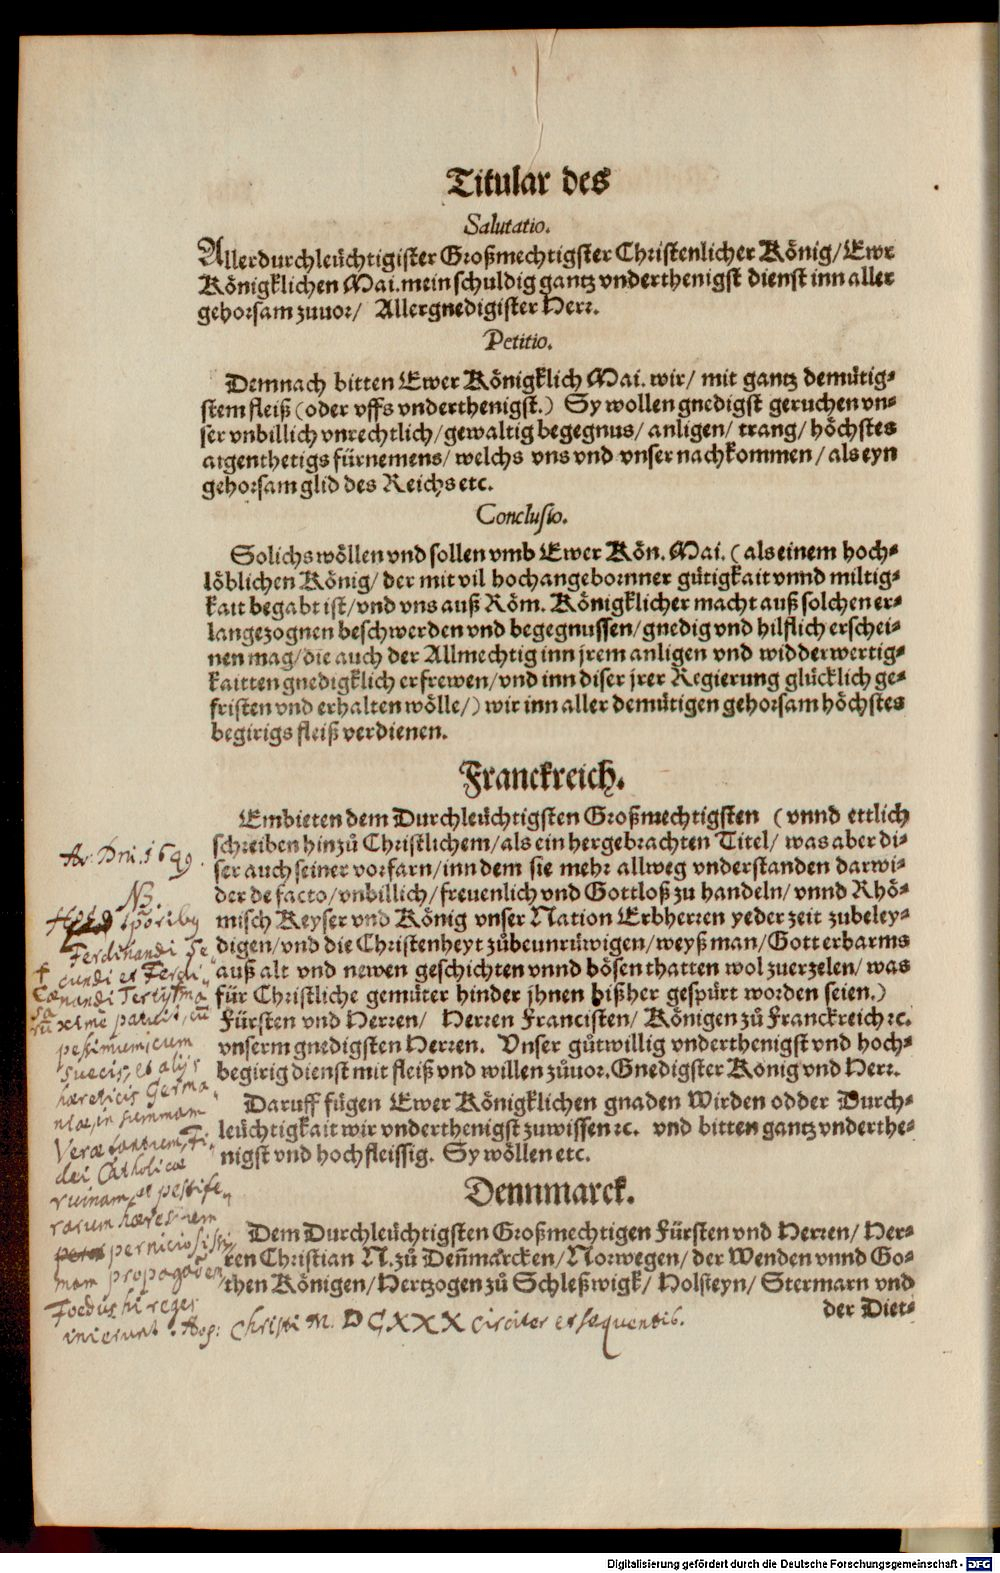 Titular des
Salutatio.
Allerdurchleüchtigister Großmechtigster Christenlicher König/ Ewr
Königklichen Mai. mein schuldig gantz vnderthenigst dienst inn aller
gehorsam zuuor/ Allergnedigister Herr.
Petitio.
Demnach bitten Ewer Königklich Mai. wir/ mit gantz demütig-
stem fleiß (oder vffs vnderthenigst.) Sy wollen gnedigst geruchen vn-
ser vnbillich vnrechtlich/ gewaltig begegnus/ anligen/ trang/ höchstes
aigenthetigs fürnemens/ welchs vns vnd vnser nachkommen/ als eyn
gehorsam glid des Reichs etc.
Conclusio.
Solichs wöllen vnd sollen vmb Ewer Kön. Mai. (als einem hoch-
löblichen König/ der mit vil hochangebornner gütigkait vnnd miltig-
kait begabt ist/ vnd vns auß Röm. Königklicher macht auß solchen er-
langezognen beschwerden vnd begegnussen/ gnedig vnd hilflich erschei-
nen mag/ die auch der Allmechtig inn jrem anligen vnd widderwertig-
kaitten gnedigklich erfrewen/ vnd inn diser jrer Regierung glücklich ge-
fristen vnd erhalten wölle/) wir inn aller demütigen gehorsam höchstes
begirigs fleiß verdienen.
Franckreich.
Embieten dem Durchleüchtigsten Großmechtigsten (vnnd ettlich
schreiben hinzů Christlichem/ als ein hergebrachten Titel/ was aber di-
ser auch seiner vorfarn/ inn dem sie mehr allweg vnderstanden darwi-
der de facto/ vnbillich/ freuenlich vnd Gottloß zu handeln/ vnnd Rhö-
misch Keyser vnd König vnser Nation Erbherren yeder zeit zubeley-
digen/ vnd die Christenheyt zůbeunrüwigen/ weyß man/ Gott erbarms
auß alt vnd newen geschichten vnnd bösen thatten wol zuerzelen/ was
für Christliche gemüter hinder jhnen bißher gespürt worden seien.)
Fürsten vnd Herren/ Herren Francisten/ Königen zů Franckreich ꝛc.
vnserm gnedigsten Herren. Vnser gůtwillig vnderthenigst vnd hoch-
begirig dienst mit fleiß vnd willen zůuor. Gnedigster König vnd Herr.
Daruff fügen Ewer Königklichen gnaden Wirden odder Durch-
leüchtigkait wir vnderthenigst zuwissen ꝛc. vnd bitten gantz vnderthe-
nigst vnd hochfleissig. Sy wöllen etc.
Dennmarck.
Dem Durchleüchtigsten Großmechtigen Fürsten vnd Herren/ Her-
ren Christian N. zů Deñmarcken/ Norwegen/ der Wenden vnnd Go-
then Königen/ Hertzogen zů Schleßwigk/ Holsteyn/ Stermarn vnd
der Diet-
Dni. 1649.
NB.
Ferdinandi Se-
cundi et Ferdi-
nandi Tertij
pessimum, cum
Suecis, et alijs
hæreticis Germa-
niæ, in summam
Veræ Fi-
dei Catholicæ
ruinam, et pestife-
rarum hæresium
perniciosissi-
mam propagationem
Foedus hi reges
inierunt. Christi M. DCXXX circiter et sequentib.
Digitalisierung gefördert durch die Deutsche Forschungsgemeinschaft - DFG